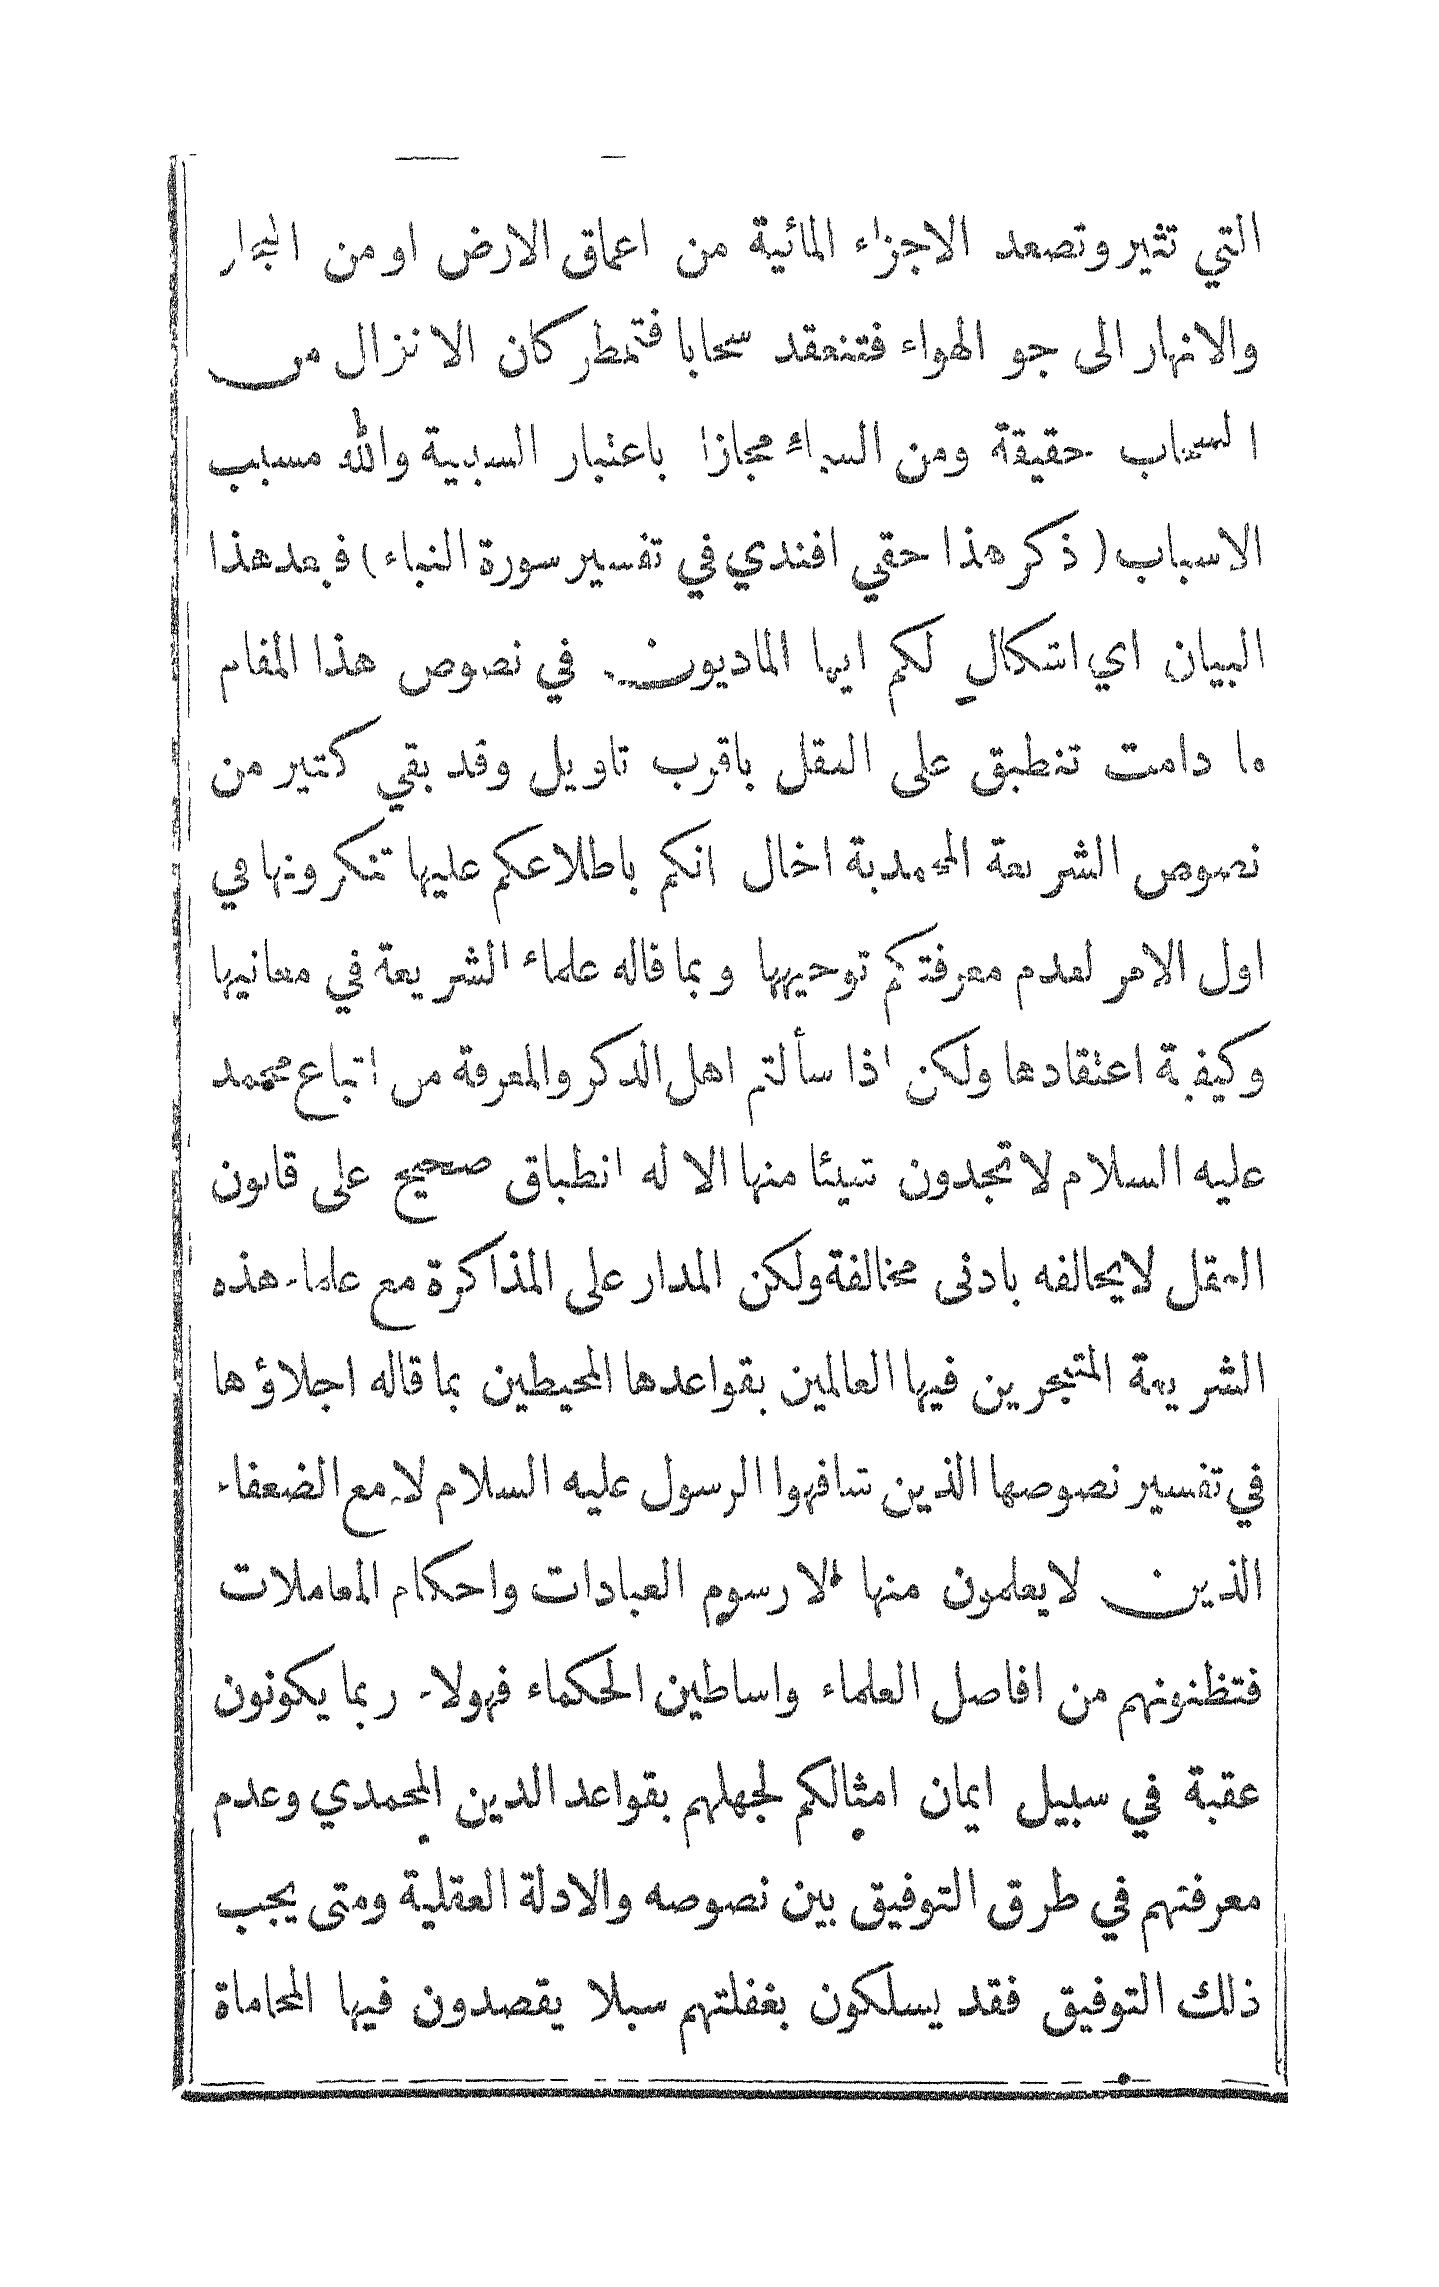 التي تثير وتصعد الاجزاء المائية من اعماق الارض او من البحار
والانهار الى جو الهواء فتنعقد سحابا فتمطر كان الانزال من
السحاب حقيقة ومن السماء مجازا باعتبار السببية والله مسبب
الاسباب ( ذكر هذا حقي افندي في تفسير سورة النباء ) فبعد هذا
البيان اي اشكال لكم ايها الماديون في نصوص هذا المقام
ما دامت تنطبق على العقل باقرب تاويل وقد بقي كثير من
نصوص الشريعة المحمدية اخال انكم باطلاعكم عليها تنكرونها في
اول الامر لعدم معرفتكم توجيهها وبما قاله علماء الشريعة في معانيها
وكيفية اعتقادها ولكن اذا سألتم اهل الذكر والمعرفة من اتباع محمد
عليه السلام لا تجدون شيئا منها الا له انطباق صحيح على قانون
العقل لا يخالفه بادنى مخالفة ولكن المدار على المذاكرة مع علماء هذه
الشريعة المتبحرين فيها العالمين بقواعدها المحيطين بما قاله اجلاؤها
في تفسير نصوصها الذين شافهوا الرسول عليه السلام لا مع الضعفاء
الذين لا يعلمون منها الا رسوم العبادات واحكام المعاملات
فتظنونهم من افاضل العلماء واساطين الحكماء فهولاء ربما يكونون
عقبة في سبيل ايمان امثالكم لجهلهم بقواعد الدين المحمدي وعدم
معرفتهم في طرق التوفيق بين نصوصه والادلة العقلية ومتى يجب
ذلك التوفيق فقد يسلكون بغفلتهم سبلا يقصدون فيها المحاماة